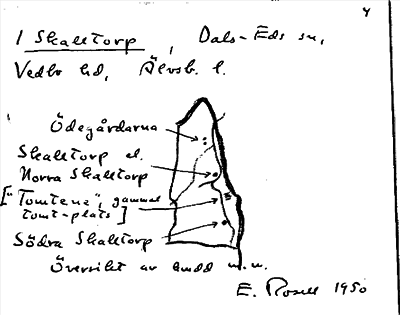 4
1 Skalltorp, Dals-Eds sn,
Vedbo hd, Älvsb. l.
Ödegårdarna
Skalltorp el.
Norra Skalltorp
["Tomtena", gammal
tomt-plats]
Södra Skalltorp
Översikt av
E. Rosell 1950